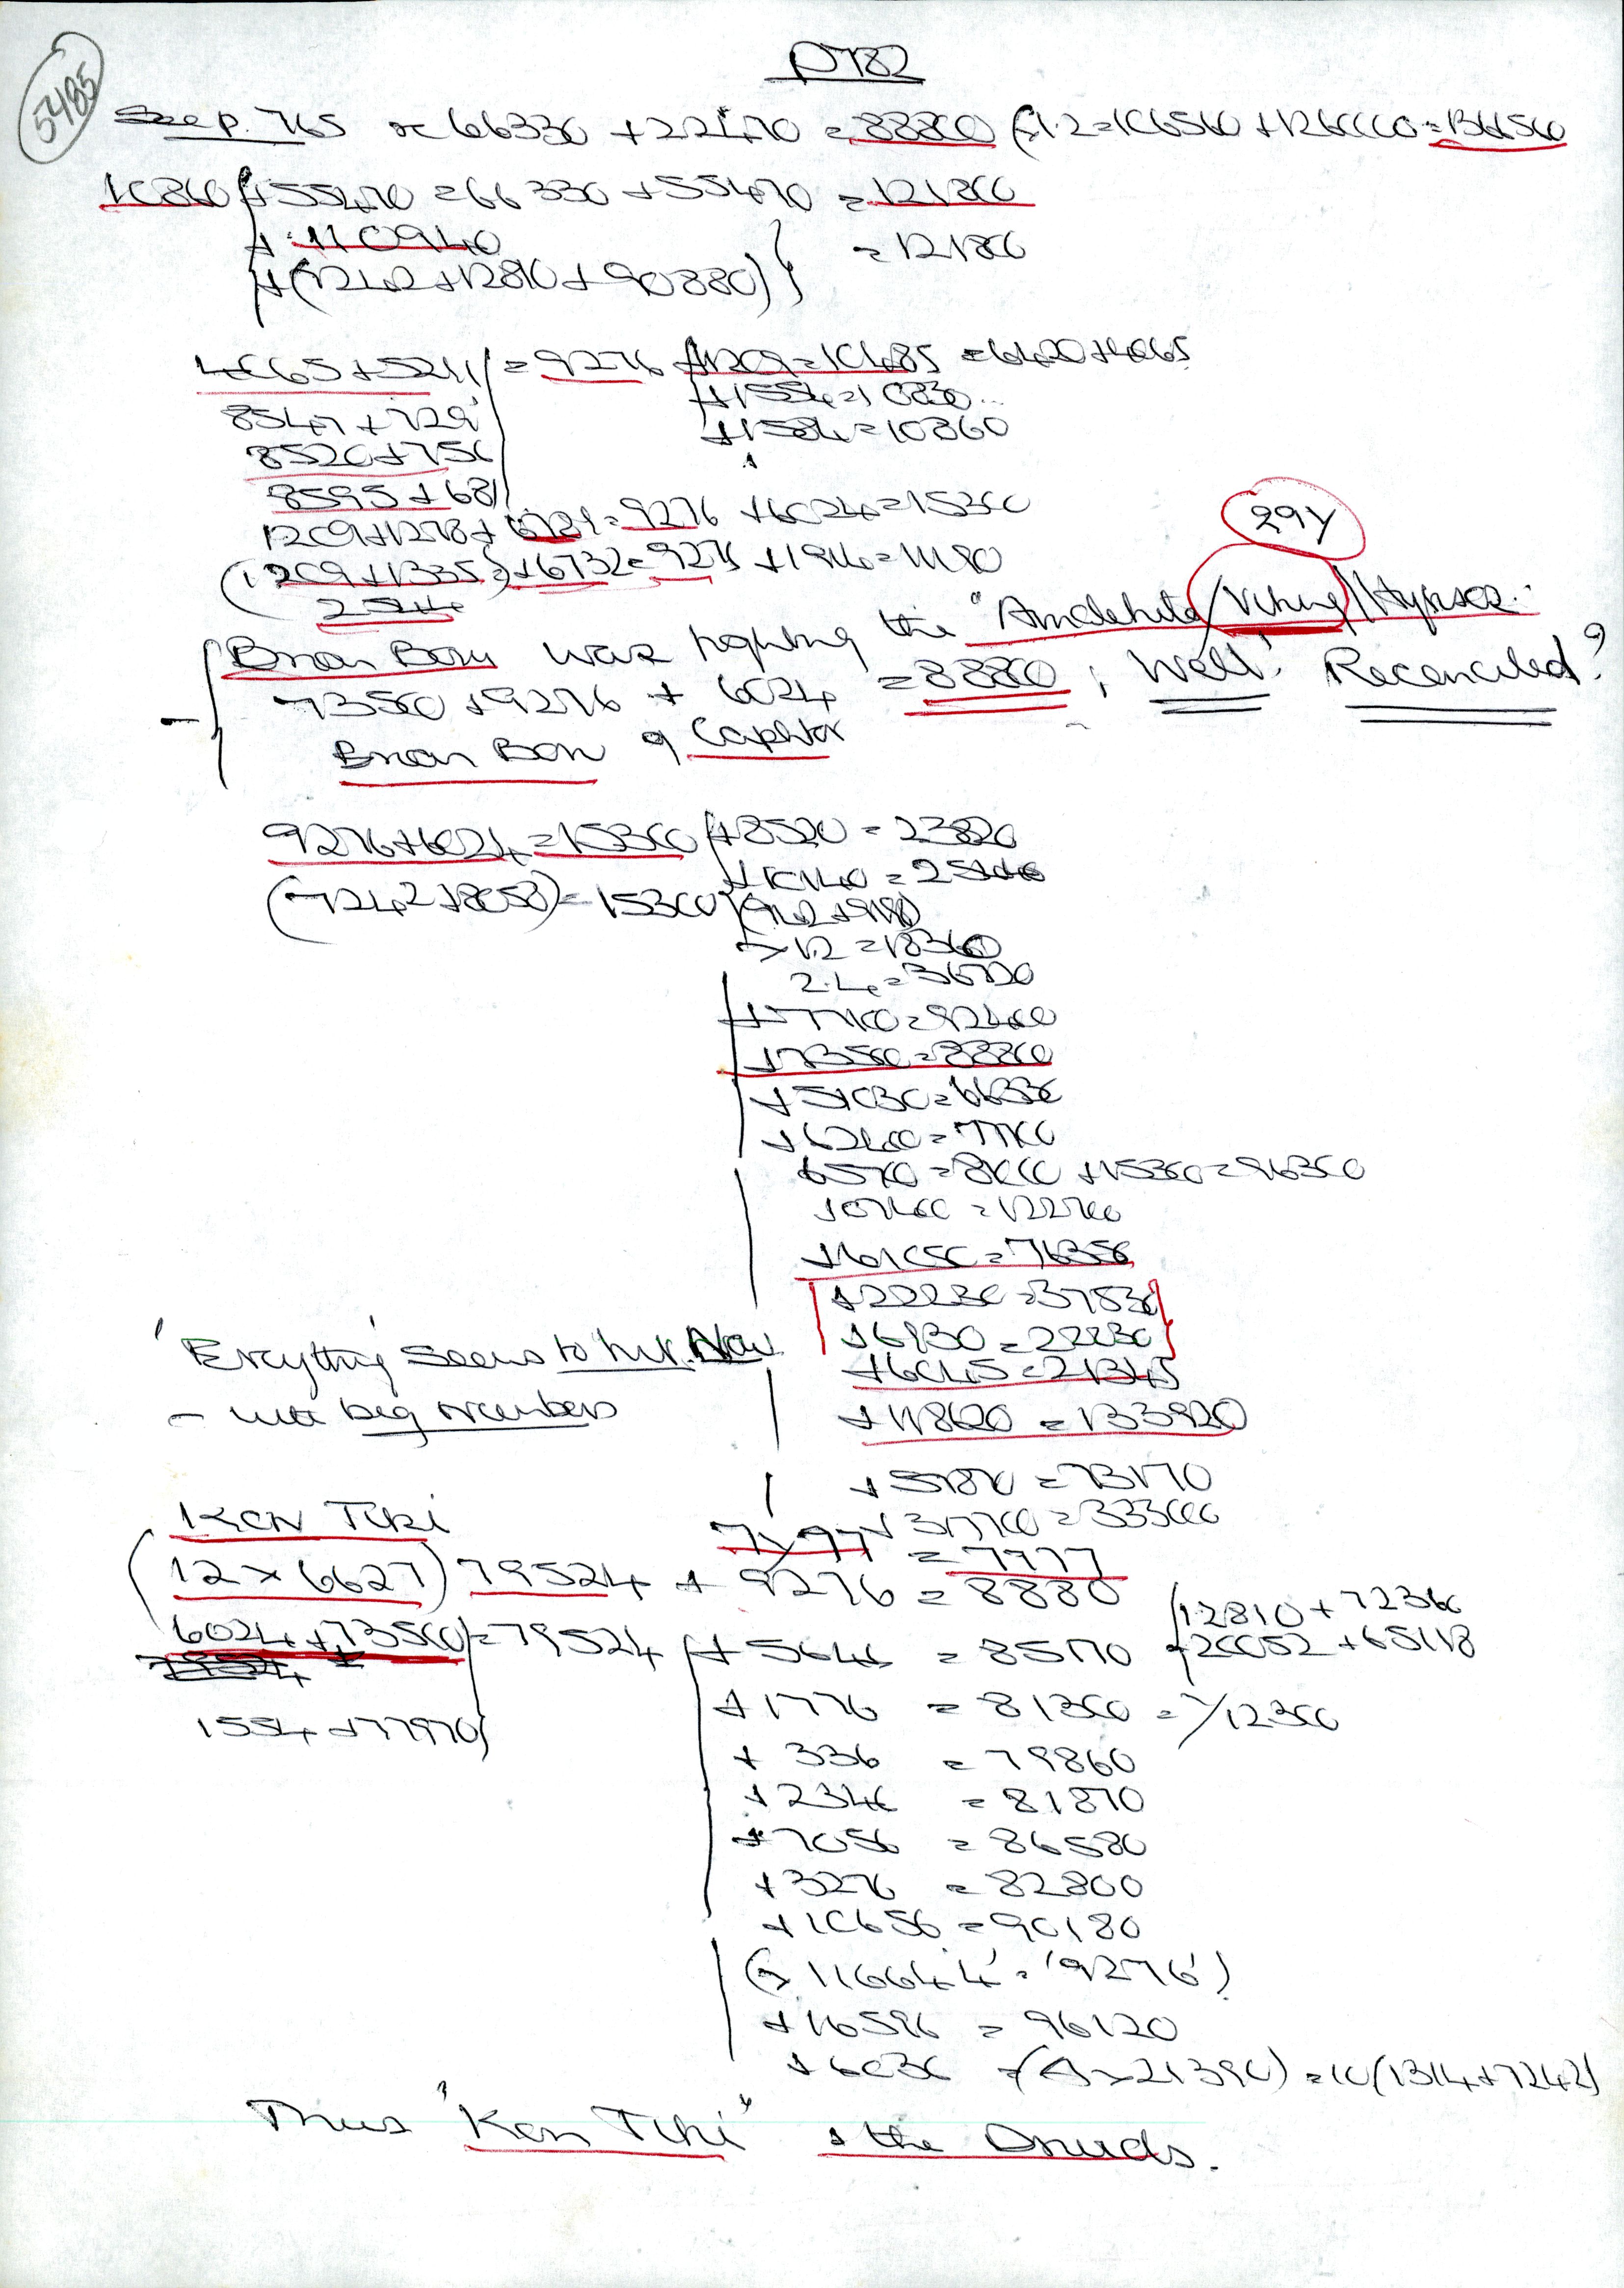 5485
P782
See p. 765 ∝ 66330 + 22470 = 88800 (×1.2 = 106560 + 1260000 = 1366560
10860 + 55470 = 66330 + 55470 = 121800
+ 110940 = 121800
+ (7242 + 12810 + 90880)
4065 + 5211 = 9276 + 1209 = 10485 = 6420 + 4065
8547 + 729 + 1554 = 10830...
8520 + 756 + 1584 = 10860
8595 + 681
1209 + 1278 + 6789 = 9276 + 6024 = 15300
(1209 + 1335) + 6732 = 9276 + 1914 = 11190
2544
299
Brian Boru was fighting the "Amalekite/Viking/Hyksos.
73500 + 9276 + 6024 = 8880 ; Well! Reconciled?
Brian Boru of Caphtor
9276 + 6024 = 15300 + 8520 = 23820
+ 10140 = 25440
(7242 + 8058) = 15300 (9142 + 9180)
× 1.2 = 18360
2.4 = 36720
+ 77100 = 92400
+ 73500 = 88800
+ 51030 = 66330
+ 62400 = 77700
65700 = 81000 + 15300 = 96300
107400 = 122700
+ 61050 = 76350
+ 22230 = 37530
+ 6930 = 22230
'Everything' seems to fit. Now + 6045 = 21345
- with big numbers + 118620 = 133920
+ 57870 = 73170
Kon Tiki + 317700 = 333000
7 × 97 = 7777
(12 × 6627) 79524 + 9276 = 8880
6024 + 73500 = 79524 + 5646 = 85170 12810 + 72360
+ 20052 + 65118
1554 + 77970 + 1776 = 81300 = 7/12300
+ 336 = 79860
+ 2346 = 81870
+ 7056 = 86580
+ 3276 = 82800
+ 10656 = 90180
(→ 116644' = '9276')
+ 16596 = 96120
+ 6036 = (4 × 21390) = 10(1314 + 7242)
Thus "Kon Tiki" & the Druids.